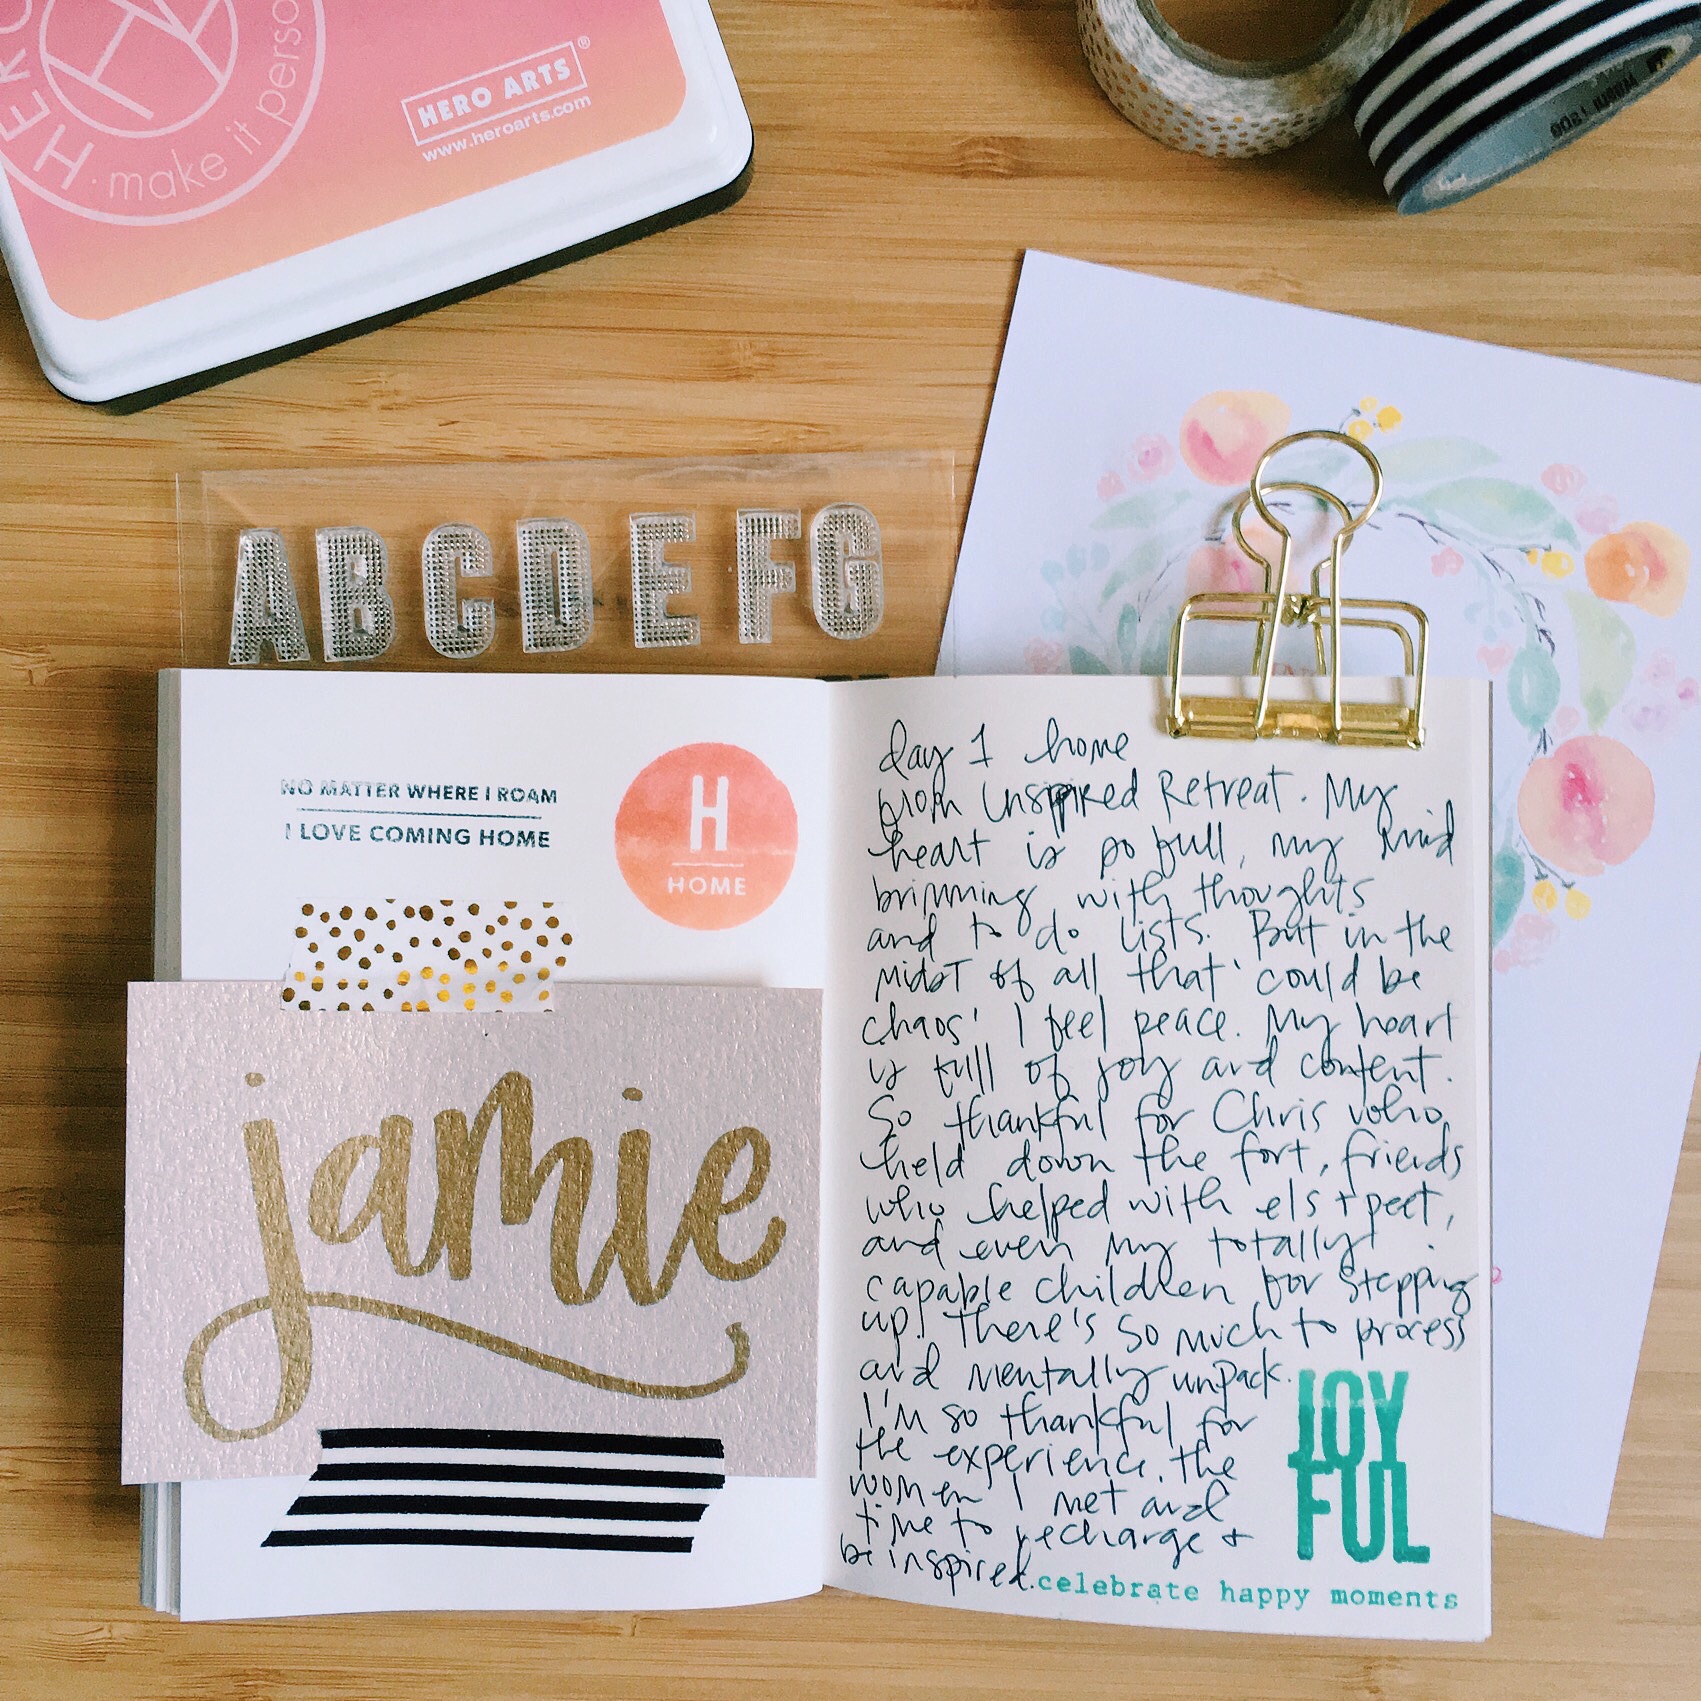 HERO ARTS®
www.heroarts.com
HERO
H · make it perso
ABCDEFG
NO MATTER WHERE I ROAM
I LOVE COMING HOME
H
HOME
jamie
day 1 home
from Inspired Retreat. My
heart is so full, my mind
brimming with thoughts
and to do lists. But in the
midst of all that 'could be
chaos' I feel peace. My heart
is full of joy and content.
So thankful for Chris who
held down the fort, friends
who helped with els + peet,
and even my totally
capable children for stepping
up! There's so much to process
and mentally unpack.
I'm so thankful for
the experience, the
women I met and
time to recharge +
be inspired.
JOY
FUL
celebrate happy moments